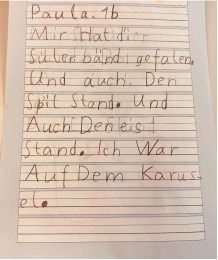 Paula. 1b
Mir Hat die
Süler bänd. gefalen.
Und auch. Den
Spil Stand. Und
Auch Den eis.
Stand. Ich War
Auf Dem Karus-
el.